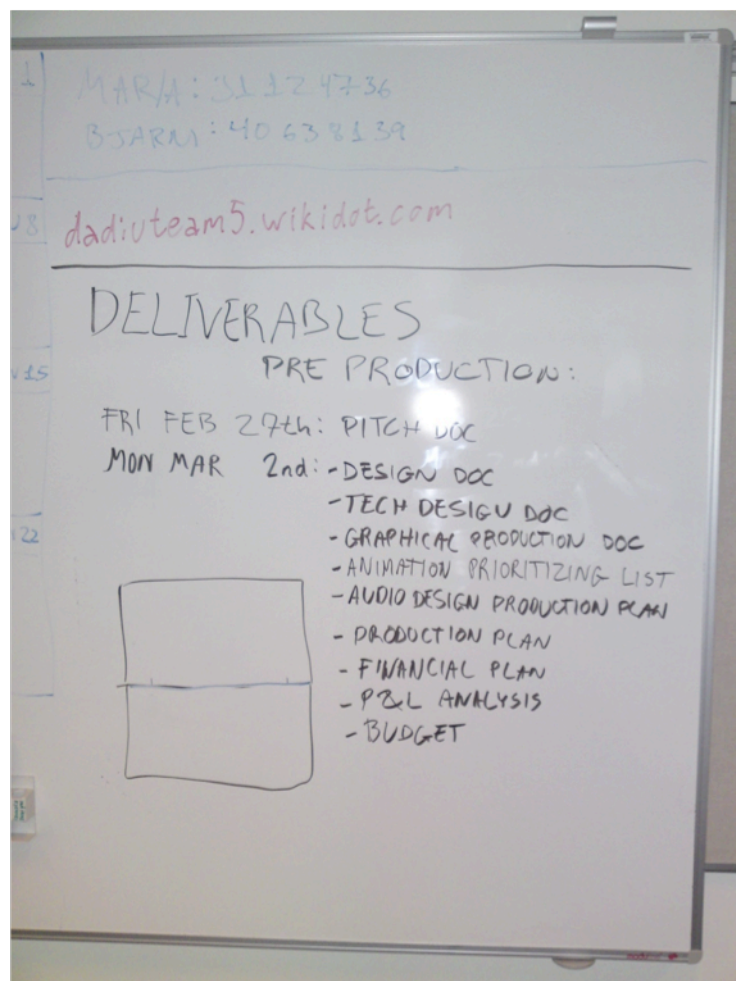 1
MARIA: 31 12 47 36
BJARNI: 40 63 81 39
8
dadiuteam5.wikidot.com
DELIVERABLES
PRE PRODUCTION:
15
FRI FEB 27th: PITCH DOC
MON MAR 2nd: - DESIGN DOC
- TECH DESIGN DOC
22
- GRAPHICAL PRODUCTION DOC
- ANIMATION PRIORITIZING LIST
- AUDIO DESIGN PRODUCTION PLAN
- PRODUCTION PLAN
- FINANCIAL PLAN
- P&L ANALYSIS
- BUDGET